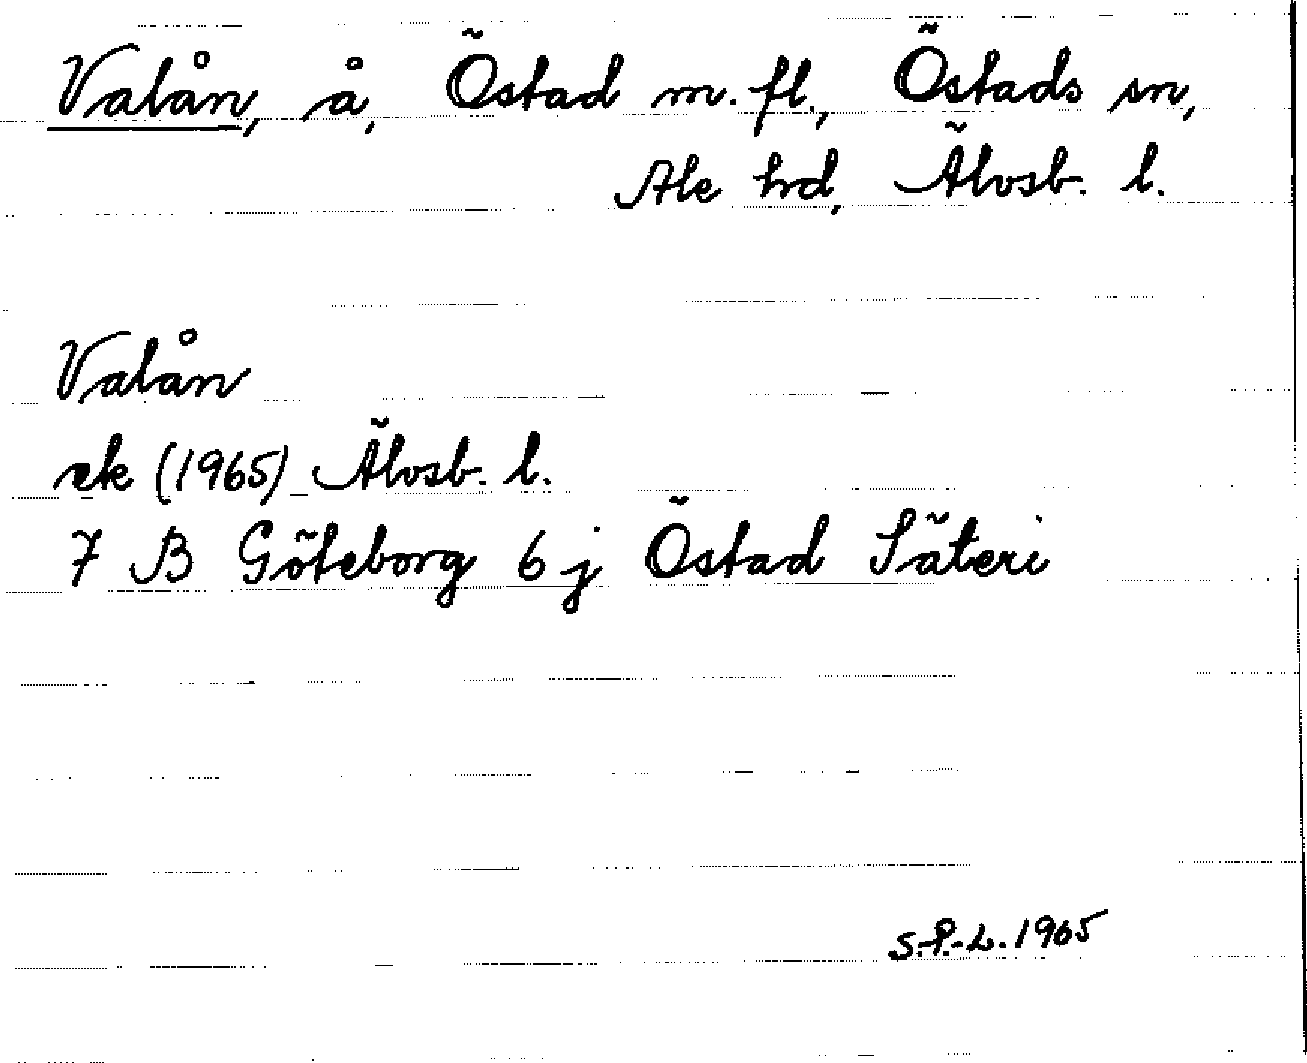 Valån, å, Östad m. fl., Östads sn,
Ale hrd, Älvsb. l.
Valån
ek (1965) Älvsb. l.
7 B Göteborg 6 j Östad Säteri
S.P.-L. 1965